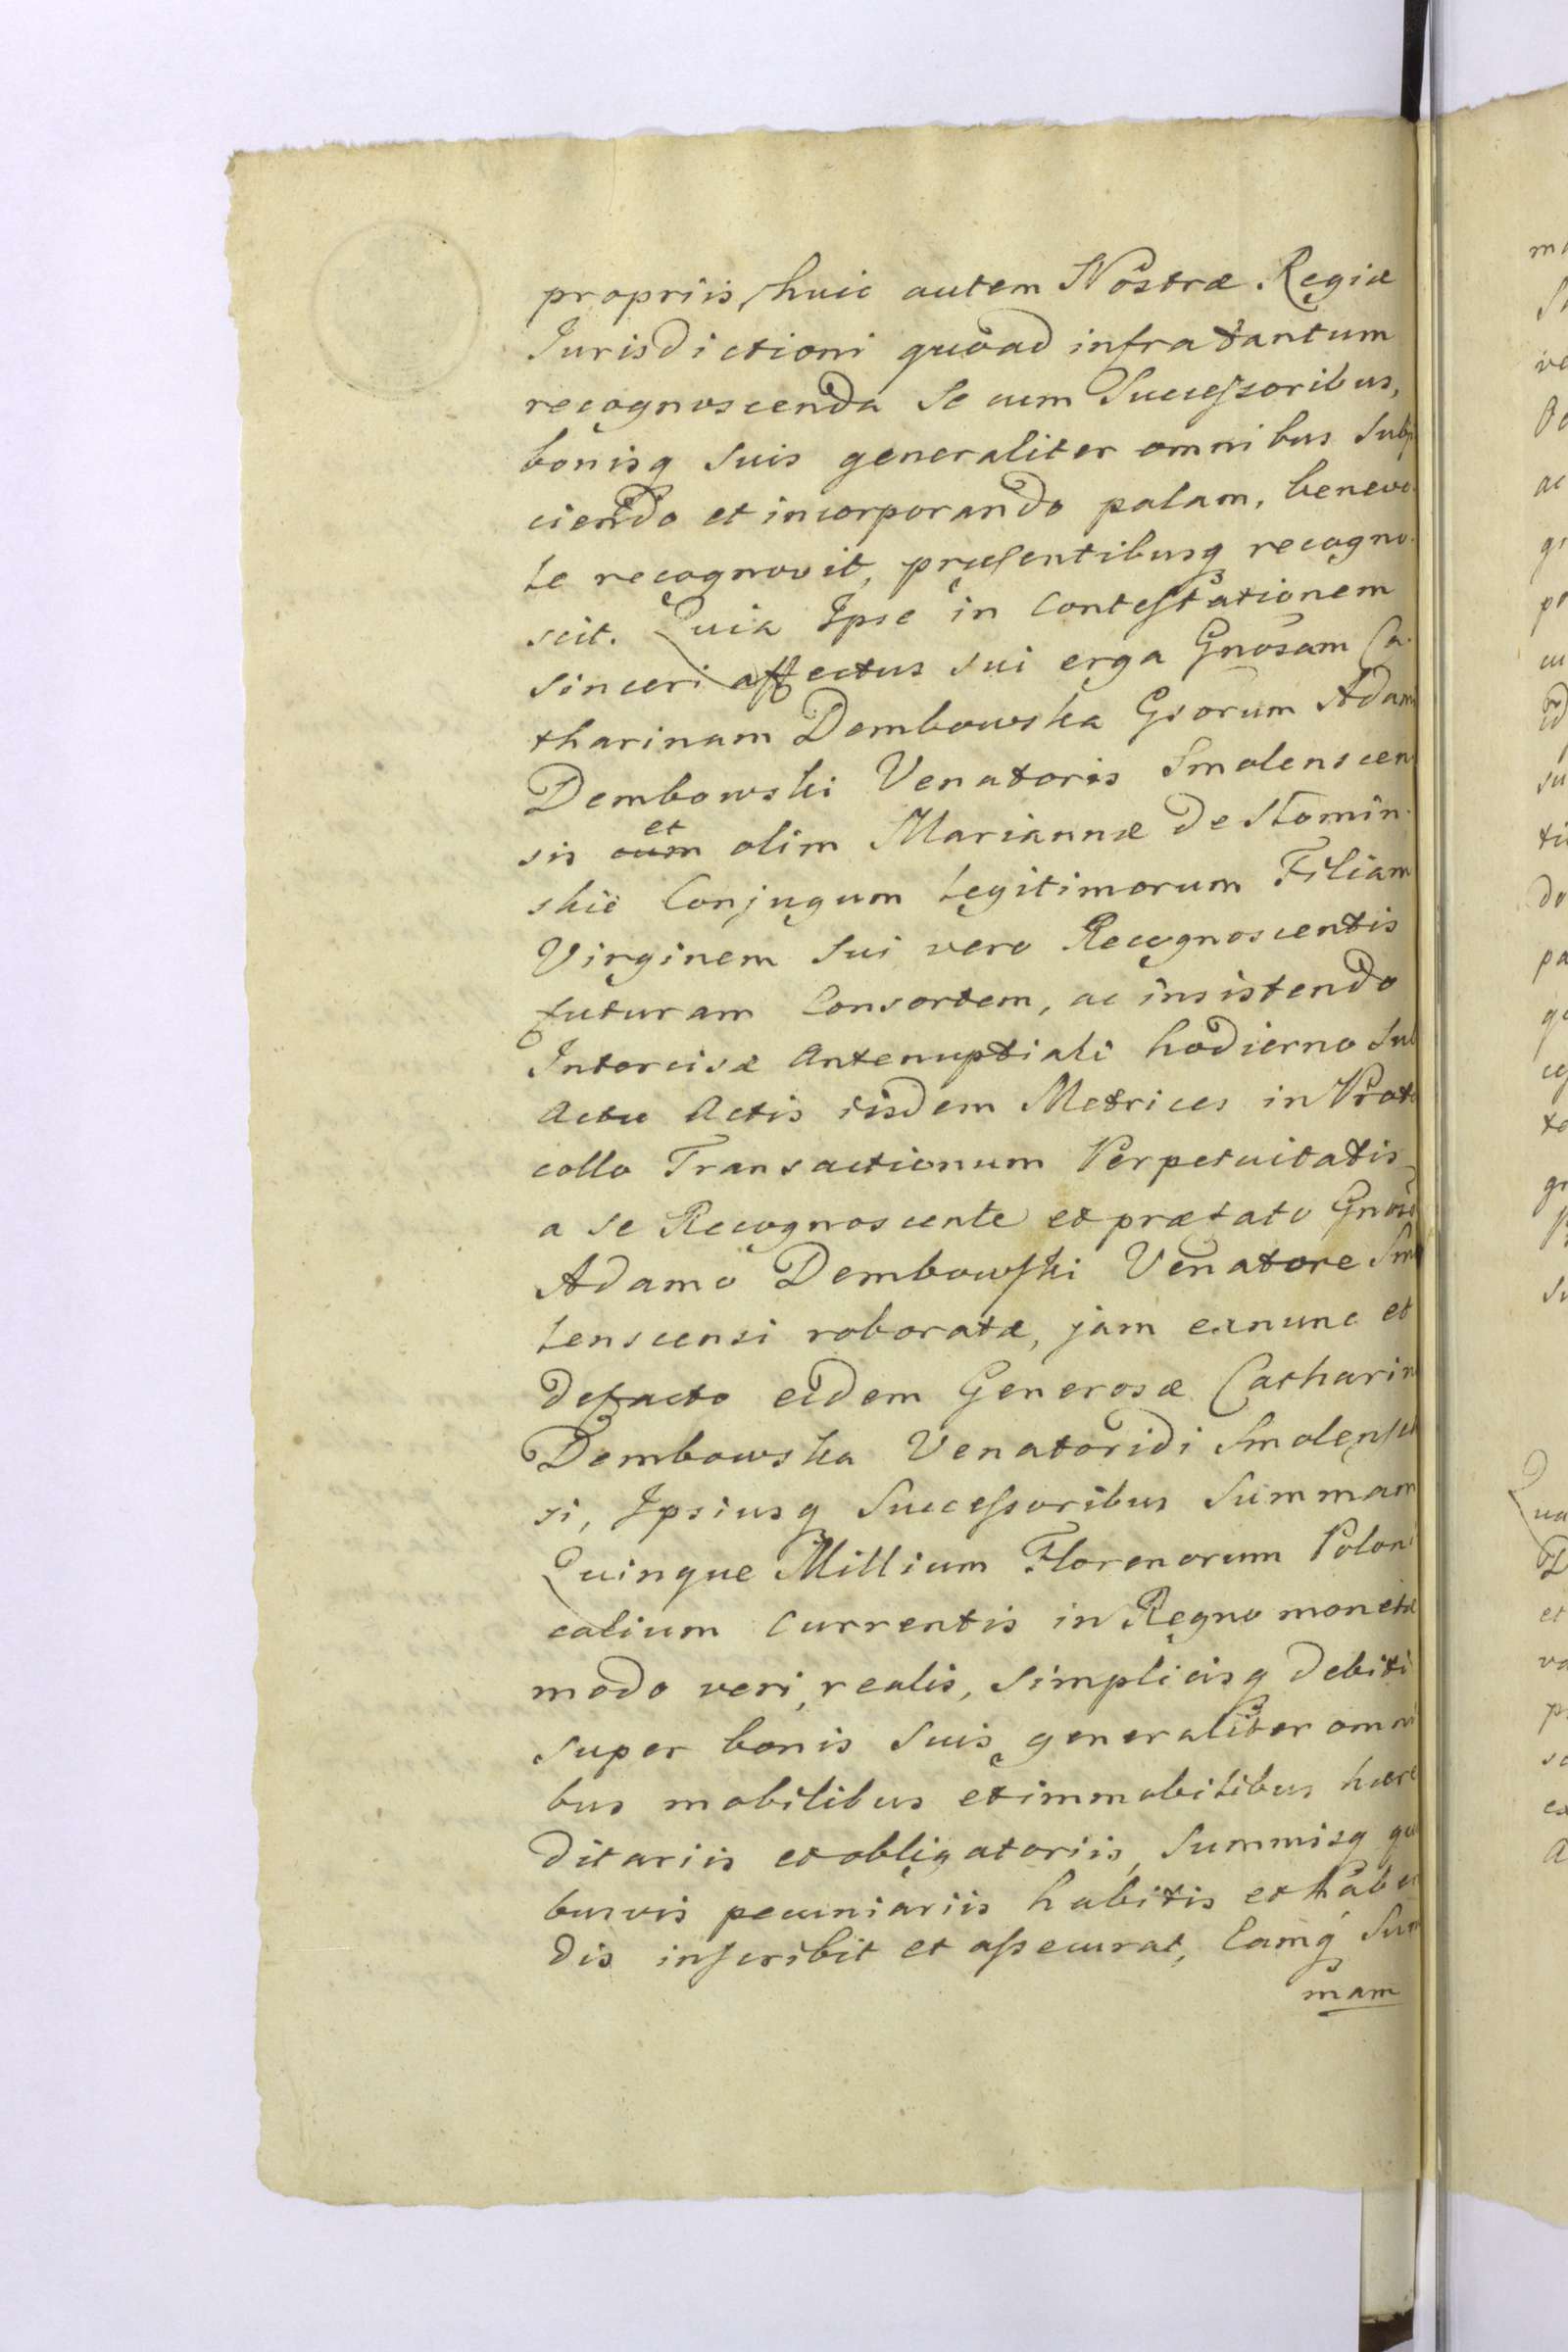 propriis, huic autem Nostræ Regiæ
Jurisdictioni quoad infra tantum
recognoscenda Se cum Successoribus,
bonisq suis generaliter omnibus Subji
ciendo et incorporando palam, benevo
le recognovit, præsentibusq recogno
scit. Quia Ipse in Contestationem
sinceri affectus sui erga Gnosam Ca
tharinam Dembowska Gsorum Adami
Dembowski Venatoris Smolenscen
sis et olim Mariannæ de Stomin
skie Conjugum Legitimorum Filiam
Virginem Sui vero Recognoscentis
futuram Consortem, ac insistendo
Intercisæ Antenuptiali hodierno Sub
Actu Actis iisdem Metrices in Proto
collo Transactionum Perpetuitatis
a se Recognoscente et præfato Gnoso
Adamo Dembowski Venatore Smo
lenscensi roboratæ, jam exnunc et
defacto eidem Generosæ Catharin
Dembowska Venatoridi Smolensce
si, Ipsiusq Successoribus Summam
Quinque Millium Florenorum Poloni
calium Currentis in Regno monetæ
modo veri, realis, simplicisq debiti
super bonis suis generaliter omni
bus mobilibus et immobilibus hære
ditariis et obligatoriis, Summisq qui
busvis pecuniariis habitis et haben
dis inscribit et assecurat, Eamq Sum
mam